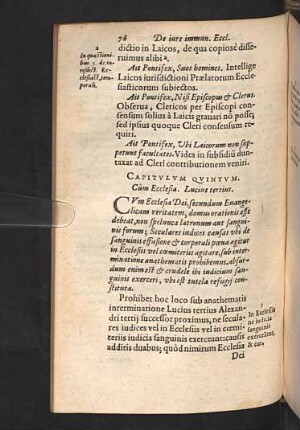 76 De iure immun. Eccl.
dictio in Laicos, de qua copiosè disse-
ruimus alibi a.
a
In quæstioni-
bus
Ecclesiast.
porali.
Ait Pontifex, Suos homines. Intellige
Laicos iurisdictioni Prælatorum Eccle-
siasticorum subiectos.
Ait Pontifex, Nisi Episcopus & Clerus.
Obserua, Clericos per Episcopi con-
sensum solius à Laicis grauari nō posse;
sed ipsius quoque Cleri consensum re-
quiri.
Ait Pontifex, Vbi Laicorum non sup-
petunt facultates. Vides in subsidiū dun-
taxat ad Cleri contributionem veniri.
CAPITVLVM QVINTVM.
Cùm Ecclesia. Lucius tertius.
CVm Ecclesia Dei, secundum Euange-
licam veritatem, domus orationis esse
debeat, non spelunca latronum aut sangui-
nis forum; Seculares iudices causas vbi de
sanguinis effusione & corporali pœna agitur
in Ecclesiis vel cœmiteriis agitare, sub inter-
minatione anathematis prohibemus, absur-
dum enim est & crudele ibi iudicium sangui-
nis exerceri, vbi est tutela refugij con-
stituta.
Prohibet hoc loco sub anathematis
interminatione Lucius tertius Alexan-
dri tertij successor proximus, ne secula-
res iudices vel in Ecclesiis vel in cœmi-
teriis iudicia sanguinis exerceant: causis
additis duabus; quòd nimirum Ecclesia
1
In Ecclesia
ne iudicia
sanguinis
exerceant,
& cur.
Dei